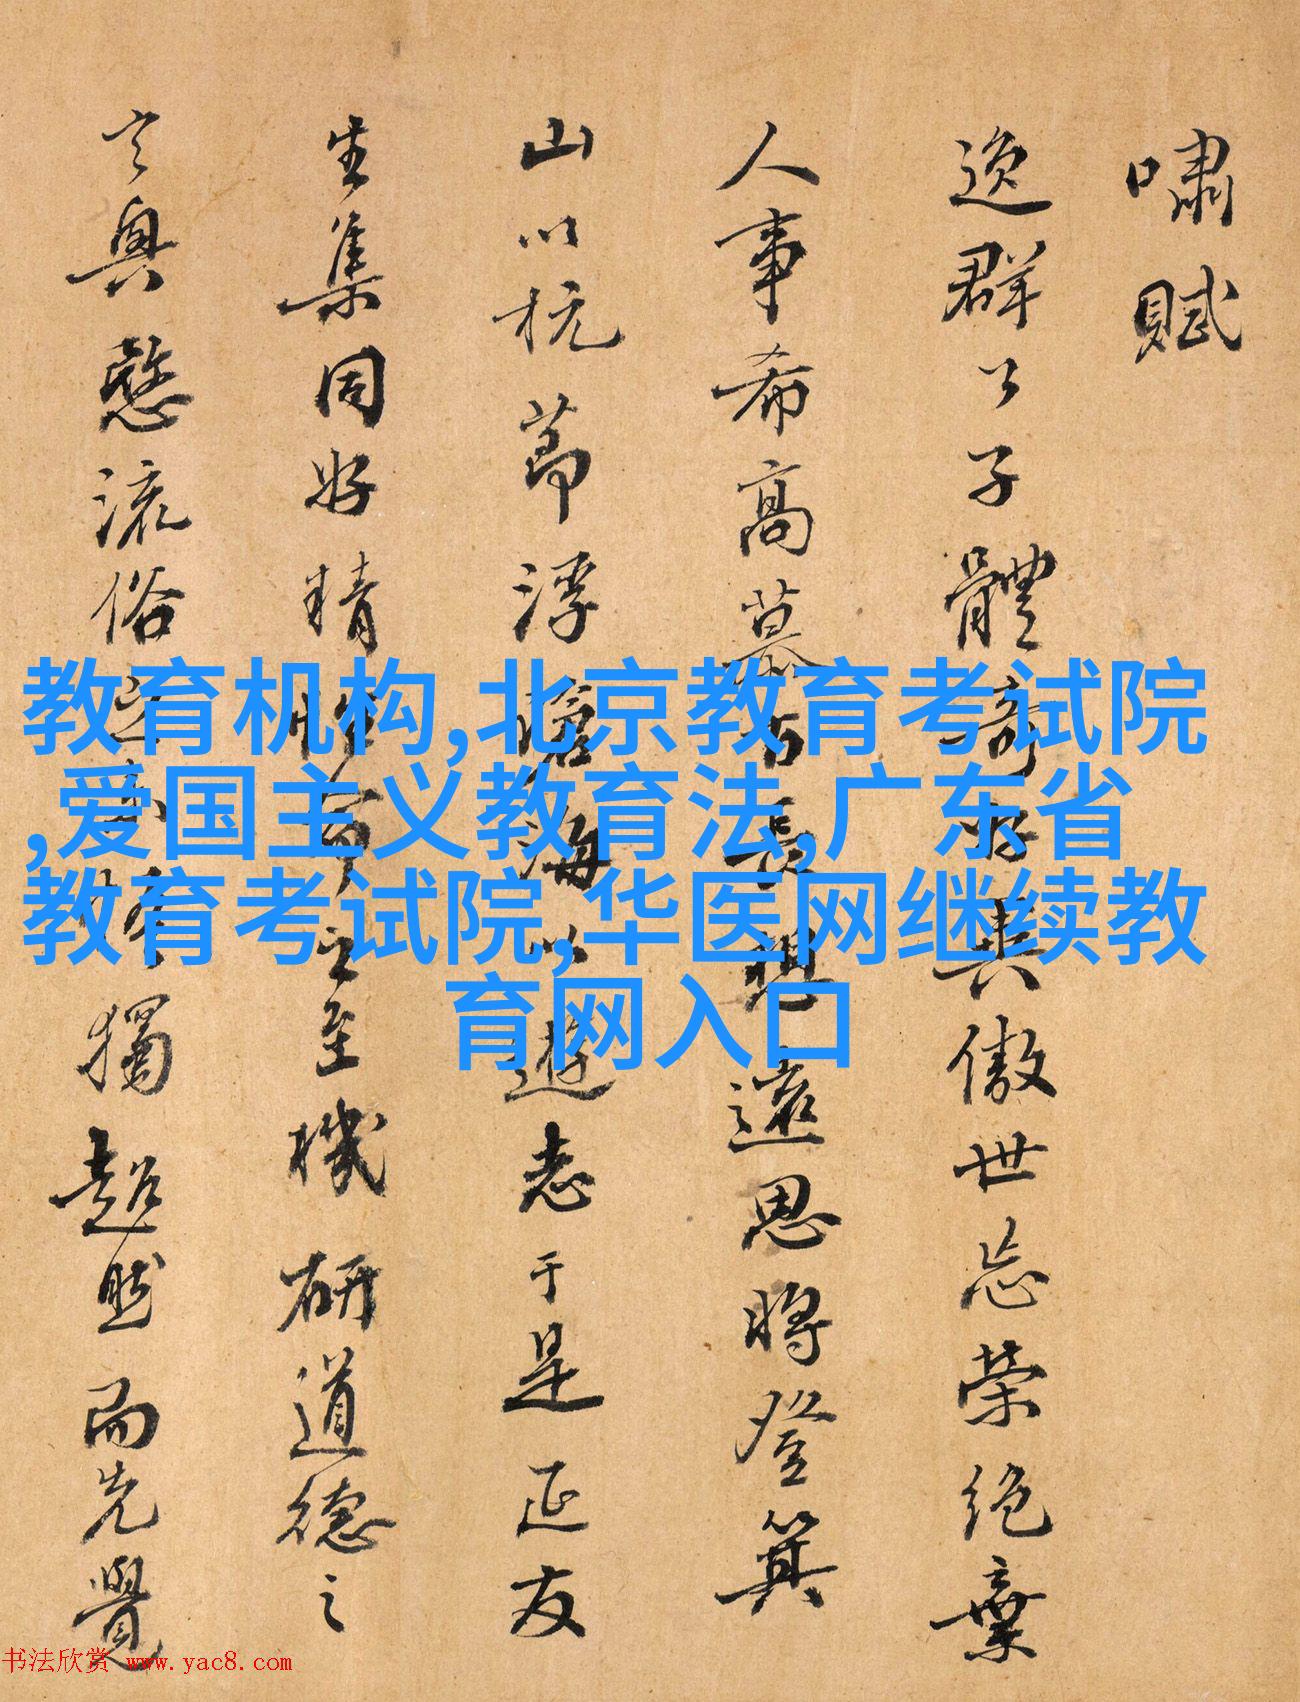 嘯賦
逸群公子體奇好異傲世忘榮絕棄
人事希高慕古長想遠思將登箕
山以杭節浮滄海以遊志于是延友
生集同好精性命之至機研道德之
玄奧愍流俗之未悟獨超然而先覺
教育机构,北京教育考试院
,爱国主义教育法,广东省
教育考试院,华医网继续教
育网入口
书法欣赏 www.yac8.com